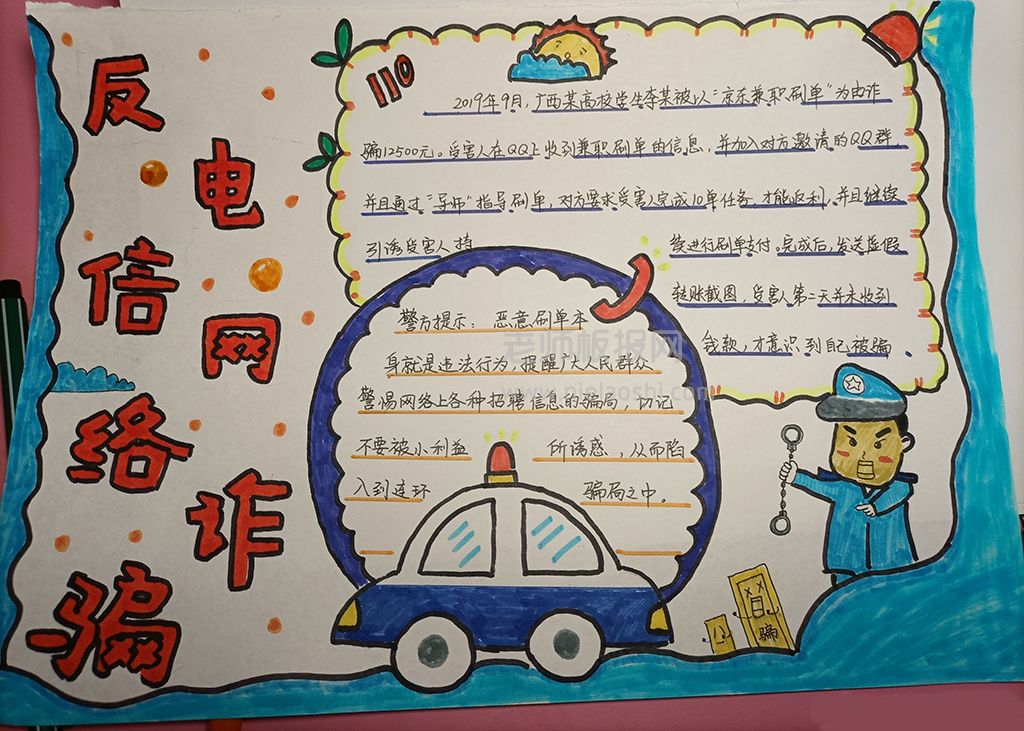 反电信网络诈骗
110
2019年9月，广西某高校学生李某被以“京东兼职刷单”为由诈
骗12500元。受害人在QQ上收到兼职刷单的信息，并加入对方邀请的QQ群，
并且通过“导师”指导刷单，对方要求受害人完成10单任务，才能返利，并且继续
引诱受害人持
续进行刷单支付。完成后，发送虚假
转账截图，受害人第二天并未收到
钱款，才意识到自己被骗。
警方提示：恶意刷单本
身就是违法行为，提醒广大人民群众
警惕网络上各种招聘信息的骗局，切记
不要被小利益所诱惑，从而陷
入到连环骗局之中。
骗
老师板报网